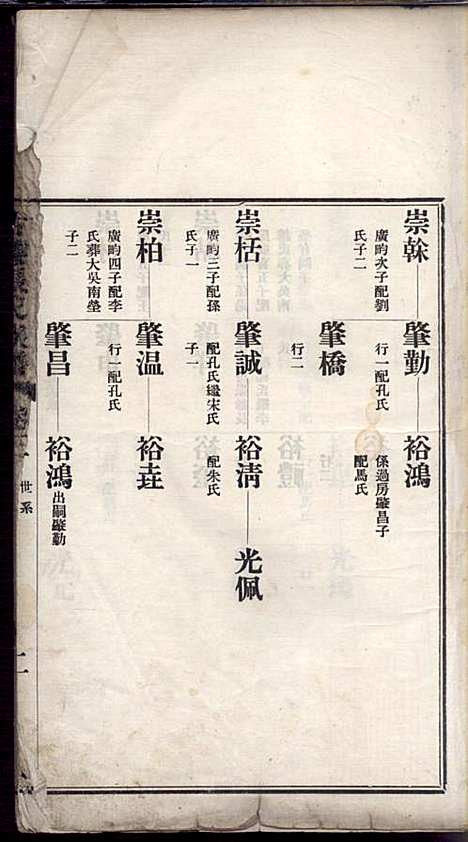 崇榦
廣畇次子配劉
氏子二
肇勤
行一配孔氏
裕鴻
係過房肇昌子
配馬氏
肇橋
行二
崇栝
廣畇三子配孫
氏子一
肇誠
配孔氏繼宋氏
子一
裕淸
配朱氏
光佩
崇柏
廣畇四子配李
氏葬大吳南塋
子二
肇温
行一配孔氏
裕垚
肇昌
裕鴻
出嗣肇勤
世系
二